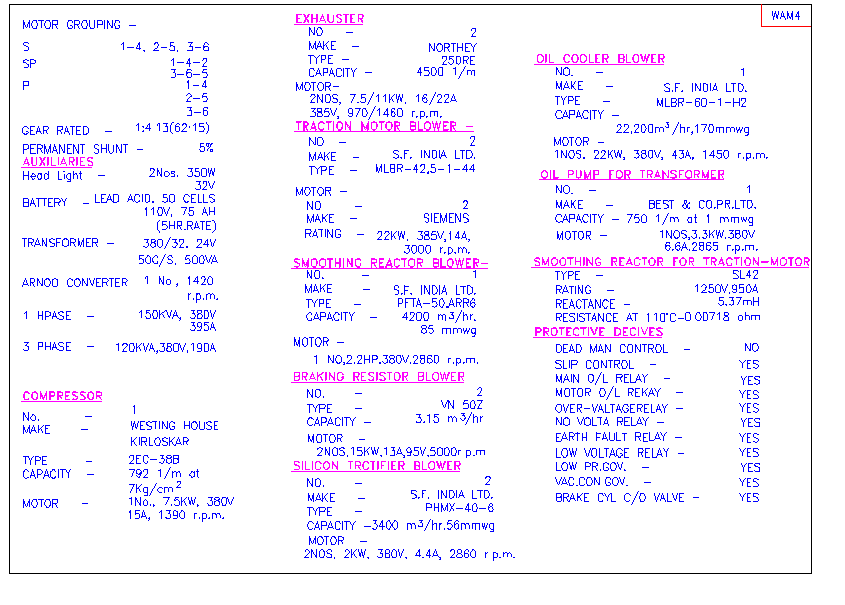 WAM4
MOTOR GROUPING –
S 1–4, 2–5, 3–6
SP 1–4–2
3–6–5
P 1–4
2–5
3–6
GEAR RATED – 1:4 13(62:15)
PERMANENT SHUNT – 5%
AUXILIARIES
Head Light – 2Nos. 350W
32V
BATTERY – LEAD ACID, 50 CELLS
110V, 75 AH
(5HR.RATE)
TRANSFORMER – 380/32, 24V
50C/S, 500VA
ARNOO CONVERTER 1 No, 1420
r.p.m.
1 HPASE – 150KVA, 380V
395A
3 PHASE – 120KVA,380V,190A
COMPRESSOR
No. – 1
MAKE – WESTING HOUSE
KIRLOSKAR
TYPE – 2EC–38B
CAPACITY – 792 1/m at
7Kg/cm2
MOTOR – 1No., 7.5KW, 380V
15A, 1390 r.p.m.
EXHAUSTER
NO – 2
MAKE – NORTHEY
TYPE – 250RE
CAPACITY – 4500 1/m
MOTOR–
2NOS, 7.5/11KW, 16/22A
385V, 970/1460 r.p.m.
TRACTION MOTOR BLOWER –
NO – 2
MAKE – S.F. INDIA LTD.
TYPE – MLBR–42,5–1–44
MOTOR –
NO – 2
MAKE – SIEMENS
RATING – 22KW, 385V,14A,
3000 r.p.m.
SMOOTHING REACTOR BLOWER–
NO. – 1
MAKE – S.F. INDIA LTD.
TYPE – PFTA–50,ARR6
CAPACITY – 4200 m3/hr.
85 mmwg
MOTOR –
1 NO,2.2HP.380V.2860 r.p.m.
BRAKING RESISTOR BLOWER
NO. – 2
TYPE – VN 50Z
CAPACITY – 3.15 m3/hr
MOTOR –
2NOS,15KW,13A,95V,5000r.p.m
SILICON TRCTIFIER BLOWER
NO. – 2
MAKE – S.F. INDIA LTD.
TYPE – PHMX–40–6
CAPACITY –3400 m3/hr.56mmwg
MOTOR –
2NOS, 2KW, 380V, 4.4A, 2860 r.p.m.
OIL COOLER BLOWER
NO. – 1
MAKE – S.F. INDIA LTD.
TYPE – MLBR–60–1–H2
CAPACITY –
22,200m3/hr,170mmwg
MOTOR –
1NOS. 22KW, 380V, 43A, 1450 r.p.m.
OIL PUMP FOR TRANSFORMER
NO. – 1
MAKE – BEST & CO.PR.LTD.
CAPACITY – 750 1/m at 1 mmwg
MOTOR – 1NOS,3.3KW.380V
6.6A.2865 r.p.m.
SMOOTHING REACTOR FOR TRACTION–MOTOR
TYPE – SL42
RATING – 1250V,950A
REACTANCE – 5.37mH
RESISTANCE AT 110°C–0.00718 ohm
PROTECTIVE DECIVES
DEAD MAN CONTROL – NO
SLIP CONTROL – YES
MAIN O/L RELAY – YES
MOTOR O/L REKAY – YES
OVER–VALTAGERELAY – YES
NO VOLTA RELAY – YES
EARTH FAULT RELAY – YES
LOW VOLTAGE RELAY – YES
LOW PR.GOV. – YES
VAC.CON GOV. – YES
BRAKE CYL C/O VALVE – YES